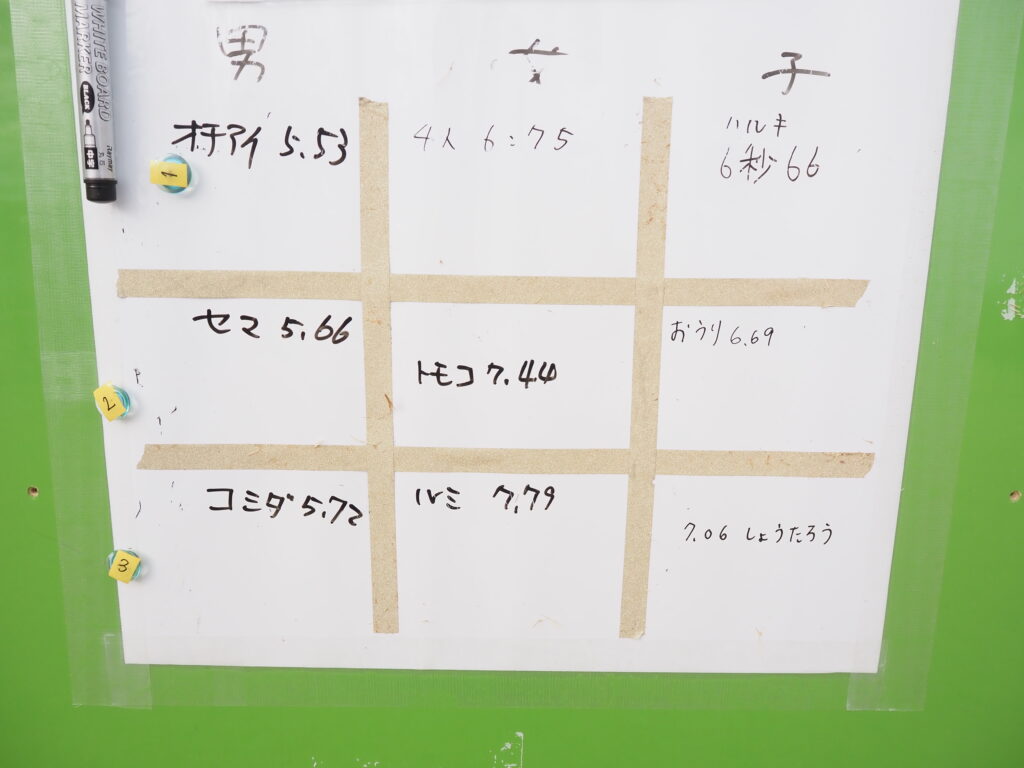 WHITE BOARD
MARKER
BLACK
中字
男
子
オチアイ 5.53
4人 6:75
ハルキ
6秒66
1
セマ 5.66
トモコ 7.44
おうり 6.69
2
コミダ 5.72
ルミ 7.79
7.06 しょうたろう
3